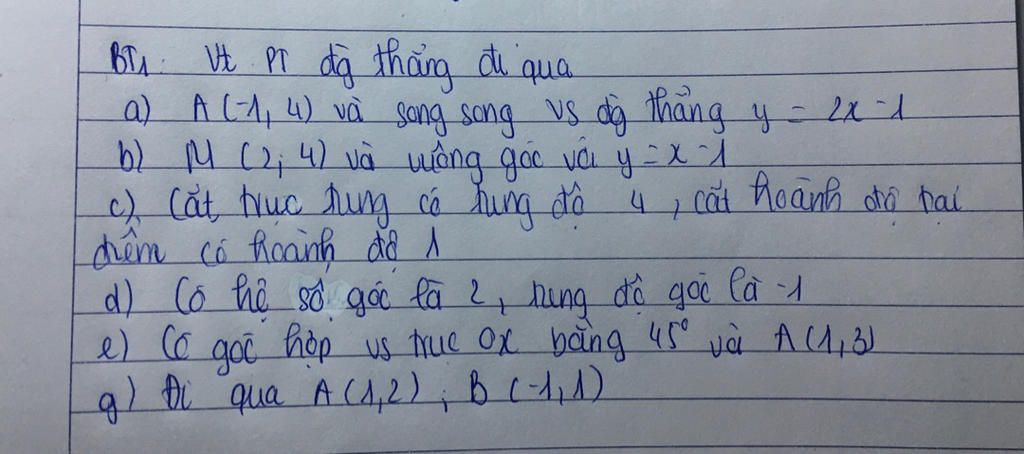 BT1: Vt PT đg thẳng đi qua
a) A (-1, 4) và song song vs đg thẳng y = 2x -1
b) M (2; 4) và vuông góc với y = x -1
c) Cắt trục tung có tung độ 4, cắt hoành độ tại
điểm có hoành độ 1
d) Có hệ số góc là 2, tung độ gốc là -1
e) Có góc hợp vs trục Ox bằng 45° và A (1, 3)
g) Đi qua A (1, 2) ; B (-1, 1)